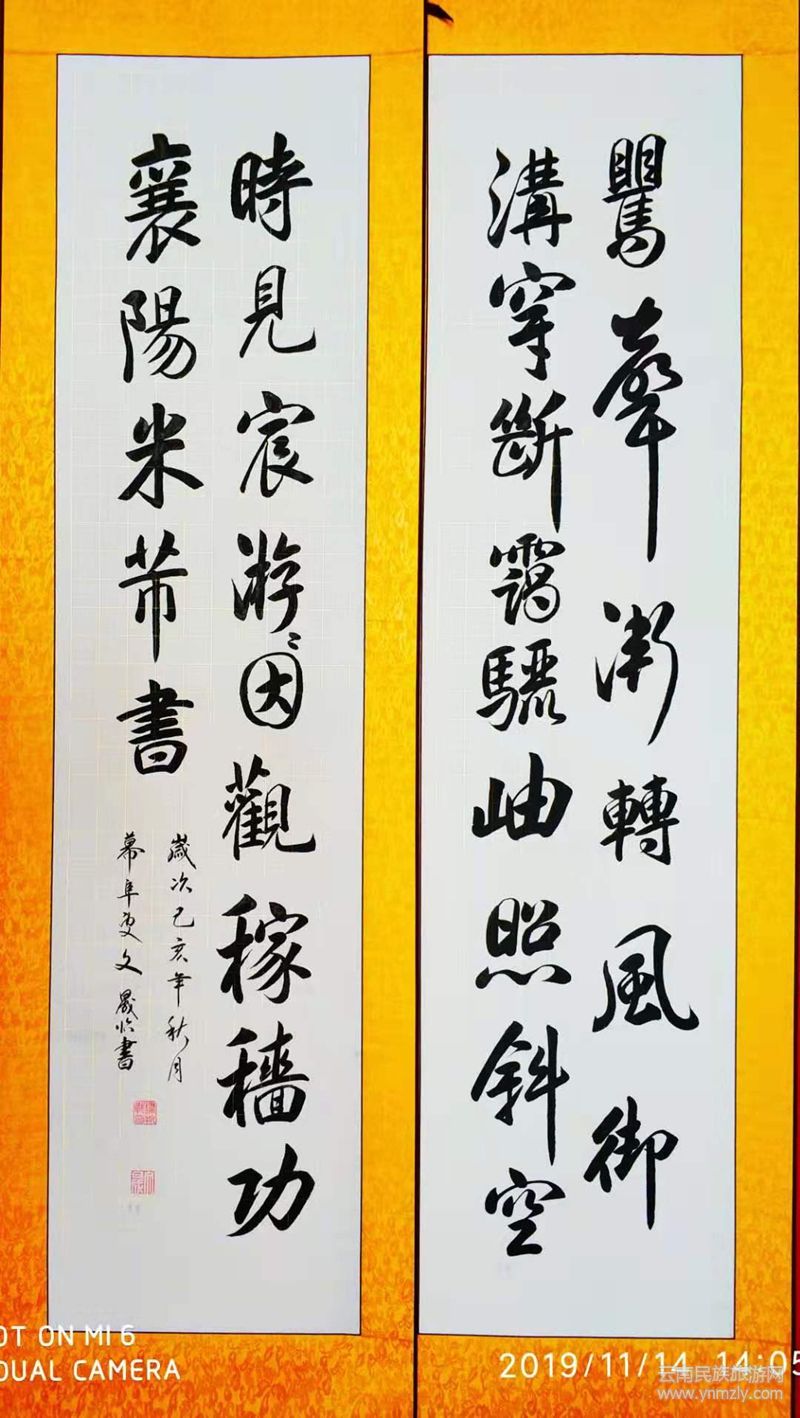 鸎聲漸轉風御
溝穿斷靄驪岫照斜空
時見宸游因觀稼穡功
襄陽米芾書
歲次己亥年秋月
幕阜叟文晟臨書
OT ON MI 6
DUAL CAMERA
2019/11/14 14:05
云南民族旅游网
www.ynmzly.com